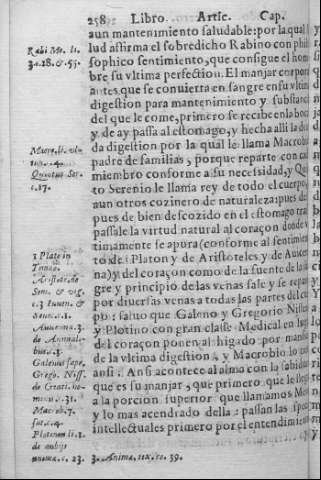 258 Libro Artic. Cap.
aun mantenimiento saludable: por la qual
lud astirma el sobredicho Rabino con phi
sophico sentimiento, que consigue el hom
bre su vltima perfection. El manjar corpor
antes que se conuierta en sangre en su vltima
digestion para mantenimiento y substanc
del que le come, primero se recibe en la boca
y de ay passa al estomago, y hecha alli la
da digestion por la qual le llama Macrob
padre de familias, porque reparte con cal
miembro conforme a su necessidad, y Qui
to Sereno le llama rey de todo el cuerpo,
aun otros cozinero de naturaleza: pues de
pues de bien descozido en el estomago tra
passale la virtud natural al coraçon donde v
timamente se apura (conforme al sentimien
to de Platon y de Aristoteles y de Auicen
na) y del coraçon como de la fuente de la
gre y principio de las venas sale y se repar
por diuersas venas a todas las partes del cu
po: saluo que Galeno y Gregorio Nisseno
y Plotino con gran classe Medical en lugar
del coraçon ponen al higado por
de la vltima digestion, y Macrobio lo
ansi. Ansi acontece al alma con la sabidu
que es su manjar, que primero que le llegue
a la porcion superior que llamamos Mente
y lo mas acendrado della: passan las
intellectuales primero por el entendimien
Rabi Mo. li.
3.c.28.&.55.
Macro. li.
Quintus Ser.
c.17.
1 Plato in
Timeo.
Auicenna.3.
de Animal-
bus.
Galenus
Grego. Niss.
de
Macrob.7.
Plotinus li.1.
c. 23. 3. Anima, tex. co. 39.